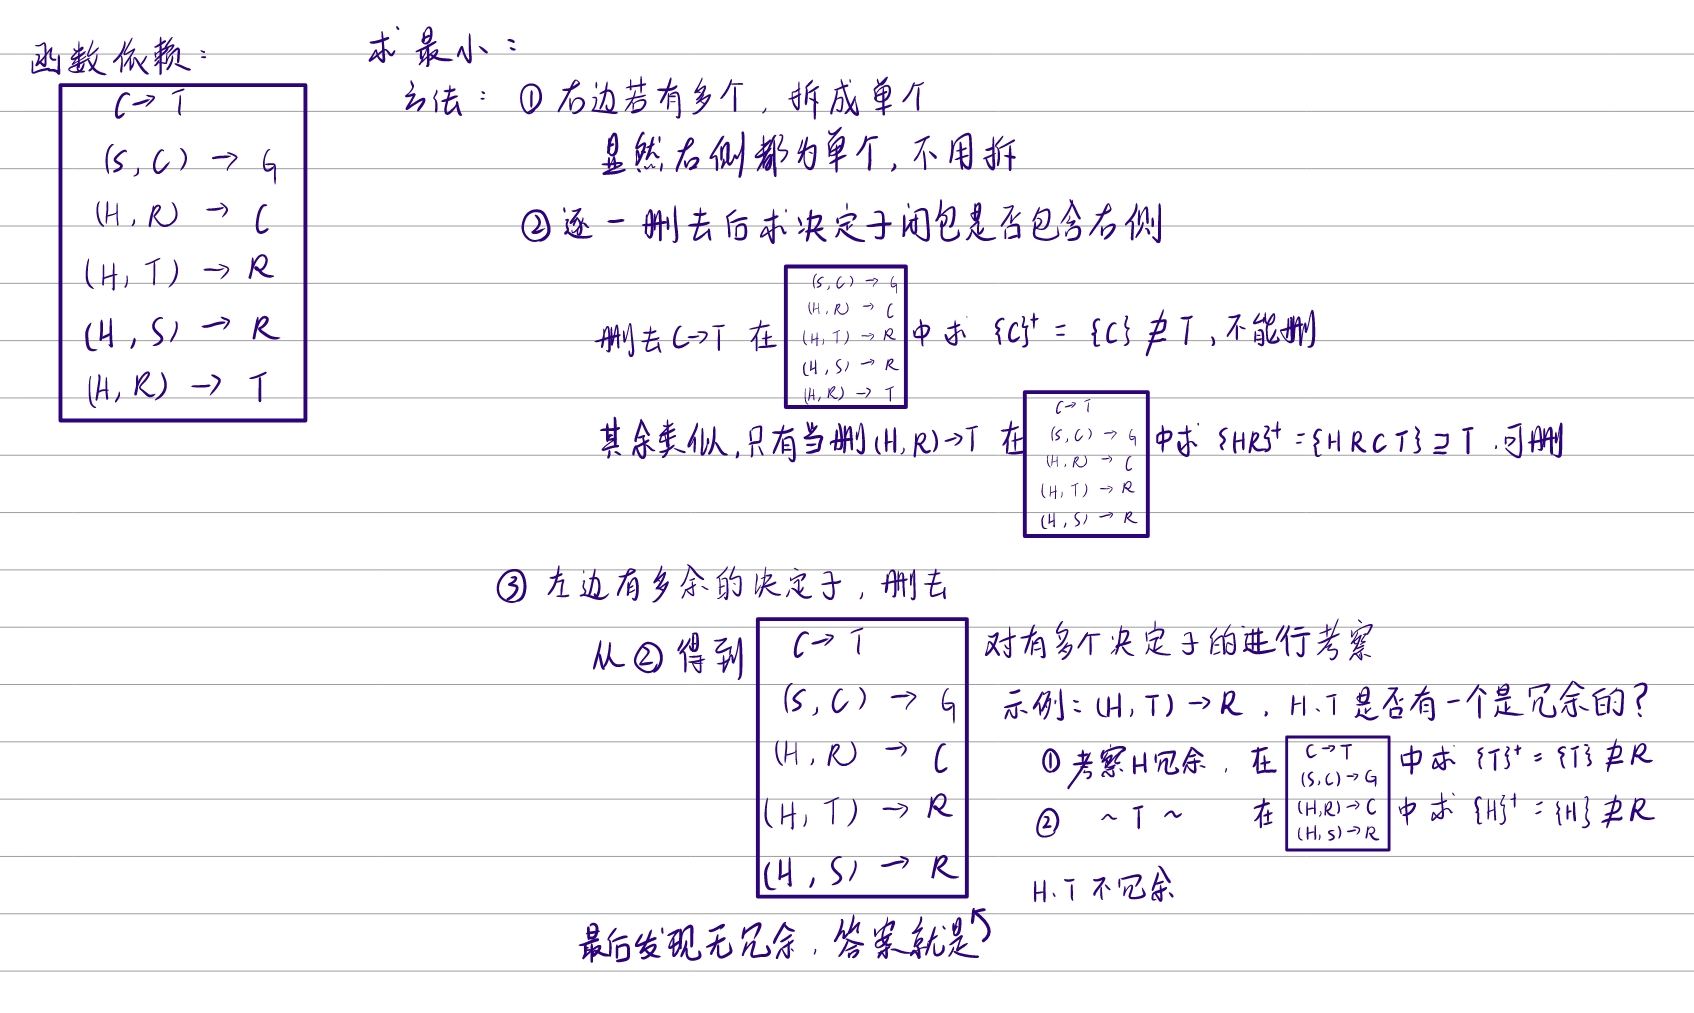 函数依赖:
C→T
(S,C)→G
(H,R)→C
(H,T)→R
(H,S)→R
(H,R)→T
求最小:
方法: ①右边若有多个,拆成单个
显然右侧都为单个,不用拆
②逐一删去后求决定子闭包是否包含右侧
删去C→T 在
(S,C)→G
(H,R)→C
(H,T)→R
(H,S)→R
(H,R)→T
中求 {C}⁺ = {C} ⊉ T,不能删
其余类似,只有当删(H,R)→T 在
C→T
(S,C)→G
(H,R)→C
(H,T)→R
(H,S)→R
中求 {HR}⁺={HRCT}⊇T.可删
③左边有多余的决定子,删去
从②得到
C→T
(S,C)→G
(H,R)→C
(H,T)→R
(H,S)→R
对有多个决定子的进行考察
示例:(H,T)→R,H、T是否有一个是冗余的?
①考察H冗余,在
② ~T~ 在
C→T
(S,C)→G
(H,R)→C
(H,S)→R
中求 {T}⁺={T}⊉R
中求 {H}⁺={H}⊉R
H、T不冗余
最后发现无冗余,答案就是